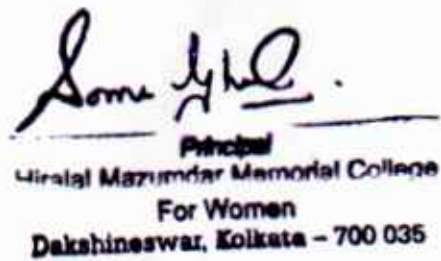 Soma Ghosh.
Principal
Hiralal Mazumdar Memorial College
For Women
Dakshineswar, Kolkata – 700 035